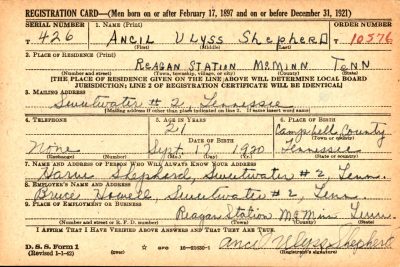 REGISTRATION CARD—(Men born on or after February 17, 1897 and on or before December 31, 1921)
SERIAL NUMBER 1. NAME (Print) ORDER NUMBER
T 426 ANCIL ULYSS SHEPHERD T 10576
(First) (Middle) (Last)
2. PLACE OF RESIDENCE (Print)
REAGAN STATION McMINN TENN
(Number and street) (Town, township, village, or city) (County) (State)
[THE PLACE OF RESIDENCE GIVEN ON THE LINE ABOVE WILL DETERMINE LOCAL BOARD
JURISDICTION; LINE 2 OF REGISTRATION CERTIFICATE WILL BE IDENTICAL]
3. MAILING ADDRESS
Sweetwater # 2, Tennessee
[Mailing address if other than place indicated on line 2. If same insert word same]
4. TELEPHONE 5. AGE IN YEARS 6. PLACE OF BIRTH
21 Campbell County
DATE OF BIRTH (Town or county)
None Sept. 17 1920 Tennessee
(Exchange) (Number) (Mo.) (Day) (Yr.) (State or country)
7. NAME AND ADDRESS OF PERSON WHO WILL ALWAYS KNOW YOUR ADDRESS
Shephard, Sweetwater # 2, Tenn.
8. EMPLOYER'S NAME AND ADDRESS
Bruce Howell, Sweetwater # 2, Tenn.
9. PLACE OF EMPLOYMENT OR BUSINESS
Reagan Station McMinn Tenn.
(Number and street or R. F. D. number) (Town) (County) (State)
I AFFIRM THAT I HAVE VERIFIED ABOVE ANSWERS AND THAT THEY ARE TRUE.
D. S. S. Form 1 GPO 16—21630-1 Ancil Ulyss Shepherd
(Revised 1-1-42) (Registrant's signature)